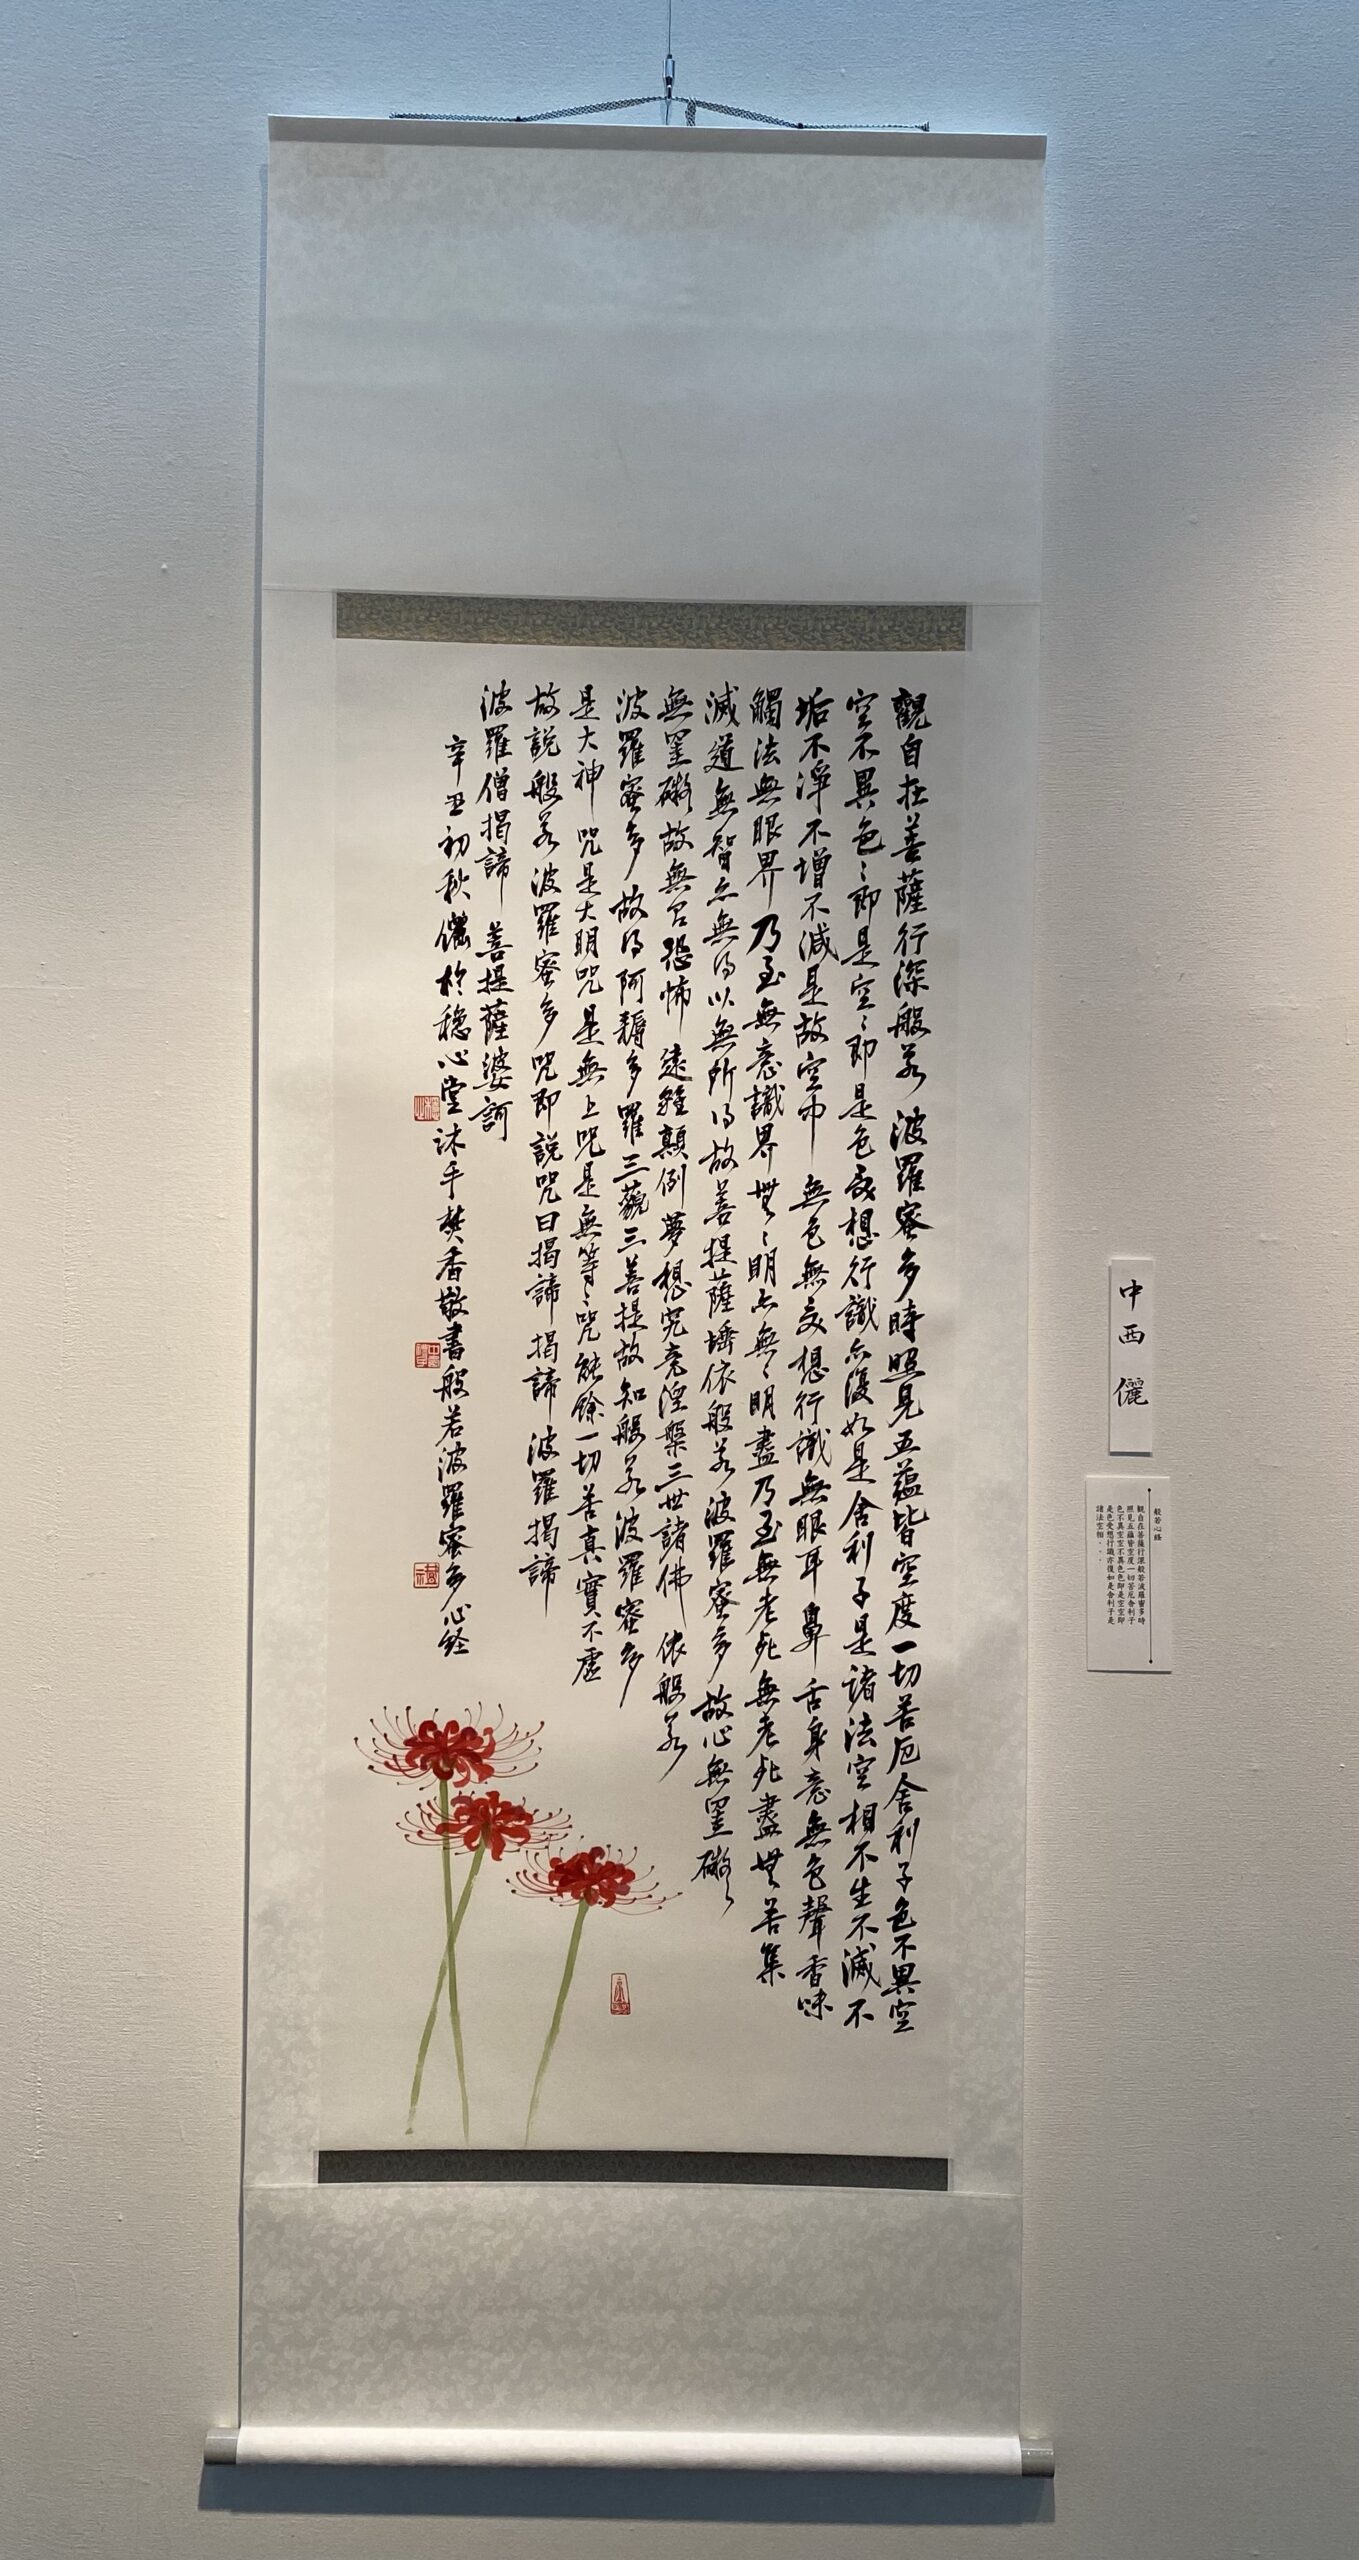 觀自在菩薩行深般若波羅蜜多時照見五蘊皆空度一切苦厄舍利子色不異空
空不異色〻即是空〻即是色受想行識亦復如是舍利子是諸法空相不生不滅不
垢不淨不增不減是故空中無色無受想行識無眼耳鼻舌身意無色聲香味
觸法無眼界乃至無意識界無〻明亦無〻明盡乃至無老死無老死盡無苦集
滅道無智亦無得以無所得故菩提薩埵依般若波羅蜜多故心無罣礙〻
無罣礙故無有恐怖遠離顛倒夢想究竟涅槃三世諸佛依般若
波羅蜜多故得阿耨多羅三藐三菩提故知般若波羅蜜多
是大神咒是大明咒是無上咒是無等〻咒能除一切苦真實不虛
故說般若波羅蜜多咒即說咒曰揭諦揭諦波羅揭諦
波羅僧揭諦菩提薩婆訶
辛丑初秋儷於穏心堂沐手焚香敬書般若波羅蜜多心経
中西儷
般若心経
観自在菩薩行深般若波羅蜜多時
照見五蘊皆空度一切苦厄舎利子
色不異空空不異色色即是空空即
是色受想行識亦復如是舎利子是
諸法空相・・・